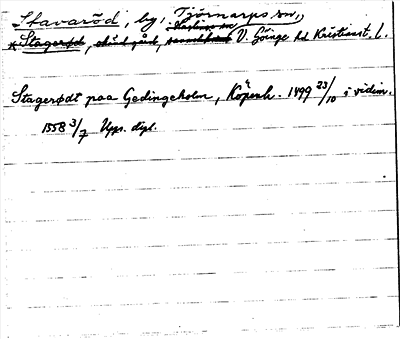 Stavaröd, by, Tjörnarps sn,
*Stagerød, V. Göinge hd Kristianst. L.
Stagerødt paa Gedingeholm, Köpenh. 1499 23/10 i vidim.
1558 3/7 Upps. dipl.